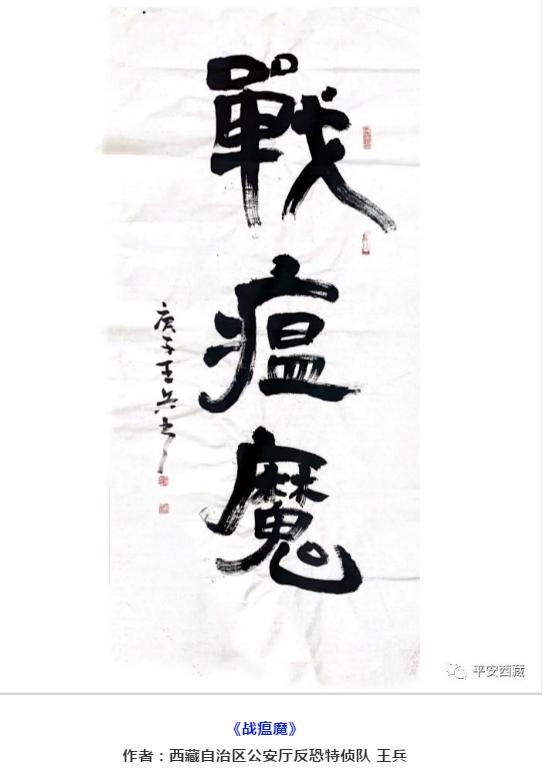 戰瘟魔
庚子王兵书
平安西藏
《战瘟魔》
作者：西藏自治区公安厅反恐特侦队 王兵